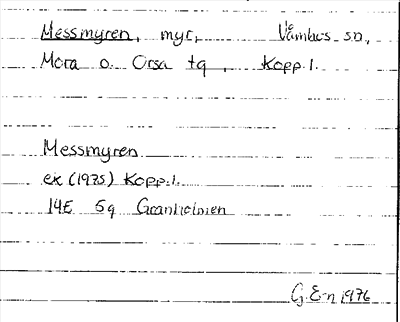 Messmyren, myr, Våmhus sn,
Mora o. Orsa tg, Kopp.l.
Messmyren
ex (1975) Kopp.l.
14E 5g Granholmen
G.E-n 1976